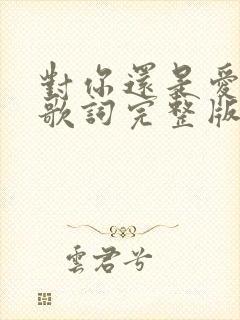 對你還是愛
歌詞完整版
雲君兮